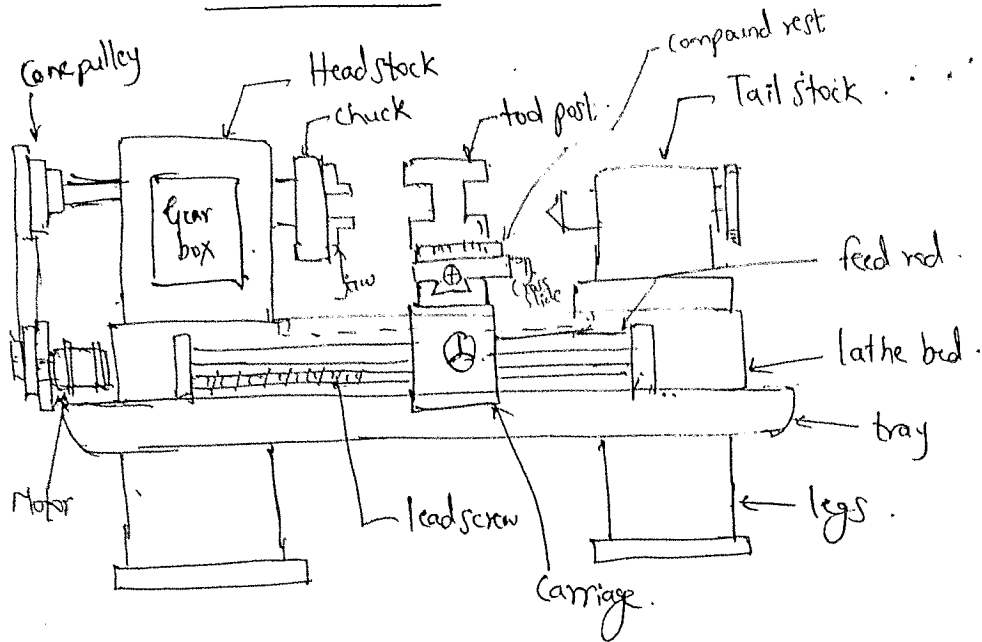 Cone pulley
Headstock
chuck
tool post.
compound rest.
Tail stock
Gear
box
Jaw
Cross
slide
feed rod.
lathe bed.
tray
legs.
Motor
leadscrew
Carriage.